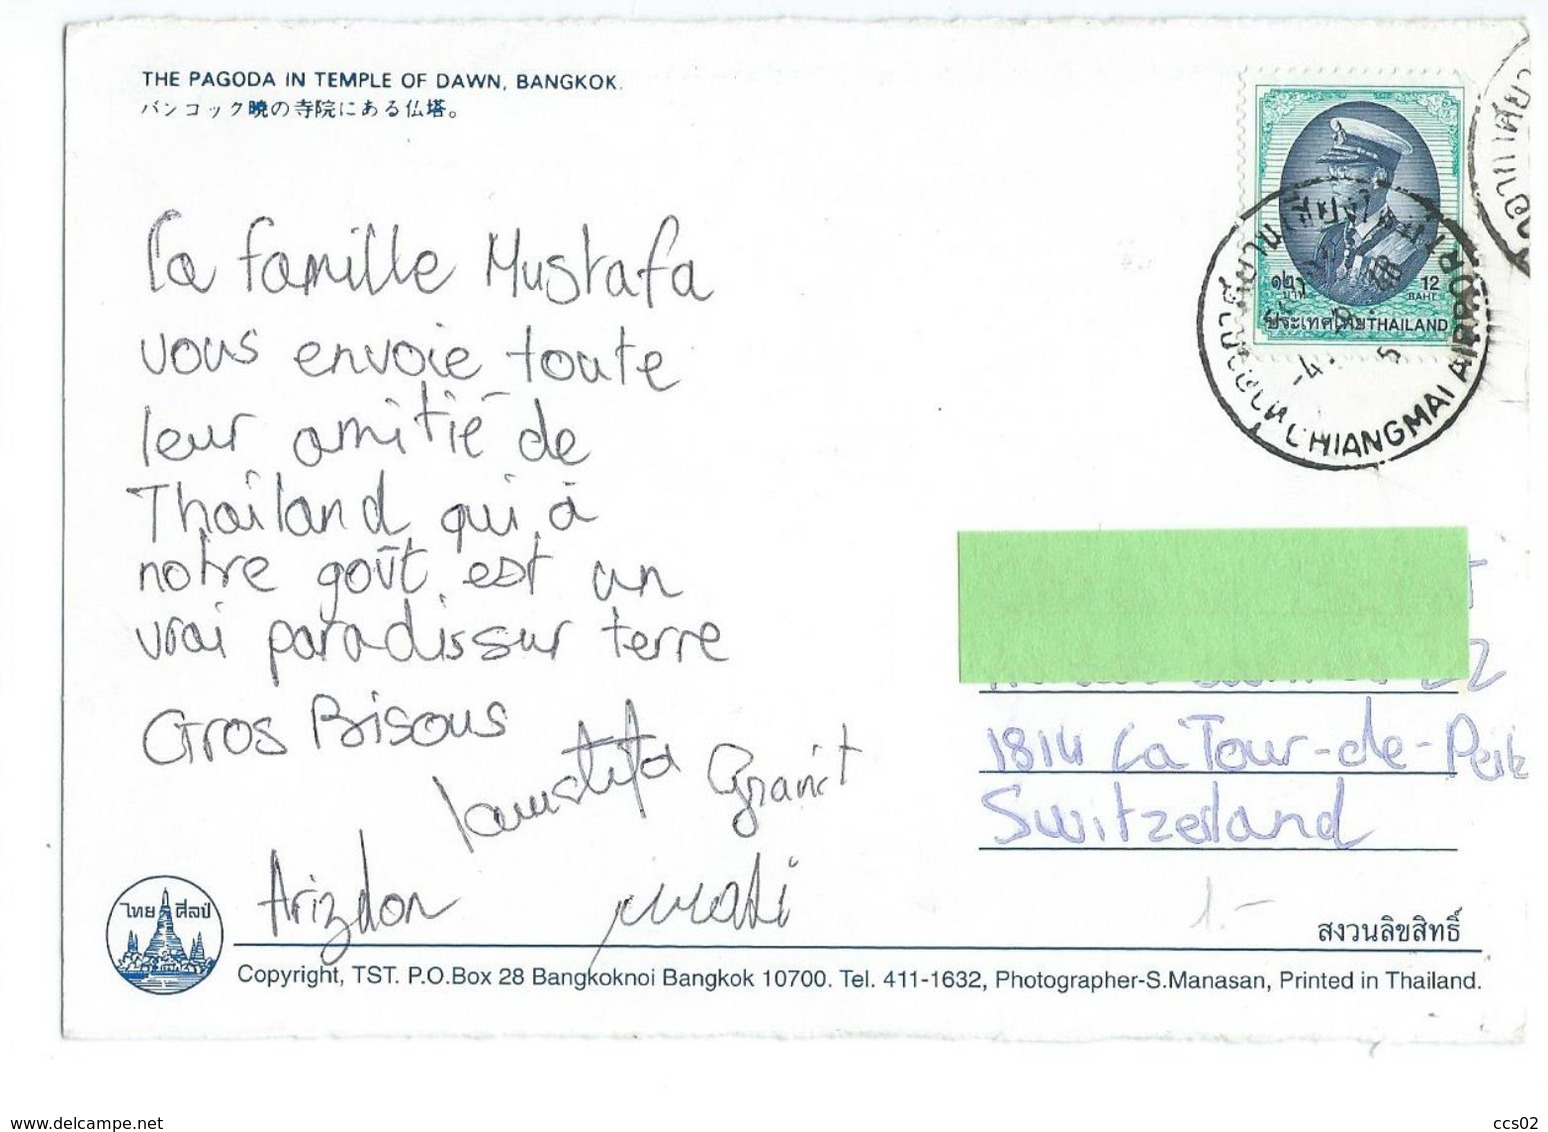 THE PAGODA IN TEMPLE OF DAWN, BANGKOK.
バンコック暁の寺院にある仏塔。
La famille Mustafa
vous envoie toute
leur amitié de
Thailand qui à
notre goût est un
vrai paradis sur terre
Gros Bisous
Granit
Arizdon
๑๒ 12
บาท BAHT
ประเทศไทย THAILAND
CHIANGMAI AIRPORT
22
1814 La Tour-de-Peilz
Switzerland
1.-
ไทย ศิลป์
สงวนลิขสิทธิ์
Copyright, TST. P.O.Box 28 Bangkoknoi Bangkok 10700. Tel. 411-1632, Photographer-S.Manasan, Printed in Thailand.
www.delcampe.net
ccs02